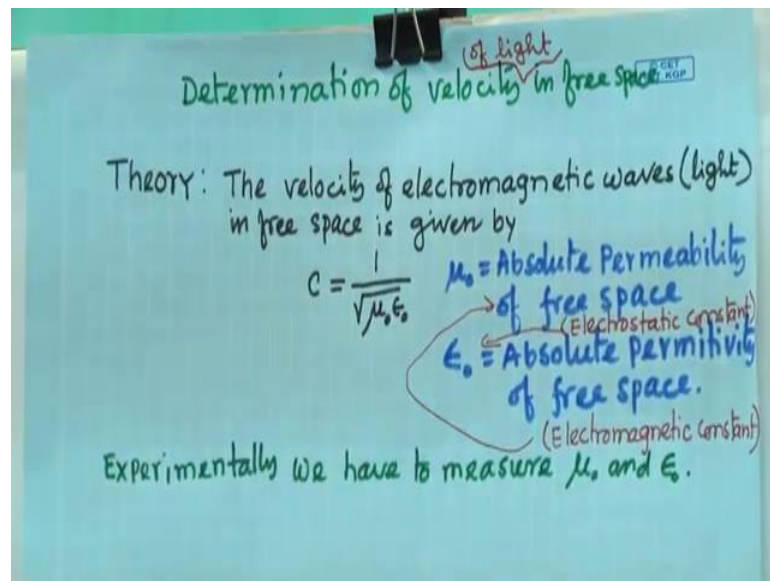 (of light)
Determination of velocity in free space
© CET
I.I.T. KGP
Theory: The velocity of electromagnetic waves (light)
in free space is given by
C = 1/√μ₀ϵ₀
μ₀ = Absolute Permeability
of free space
(Electrostatic constant)
ϵ₀ = Absolute permitivity
of free space.
(Electromagnetic constant)
Experimentally we have to measure μ₀ and ϵ₀.